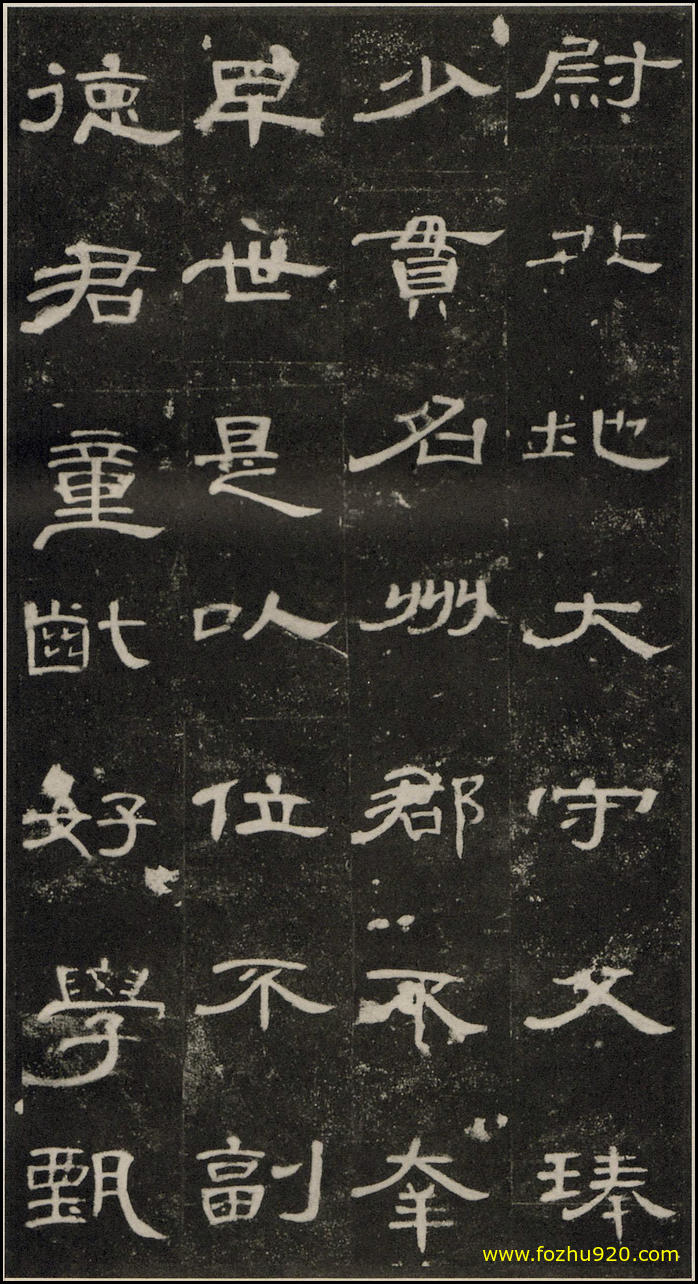 尉北地大守父琫
少貫名州郡不幸
早世是以位不副
德君童齔好學甄
www.fozhu920.com